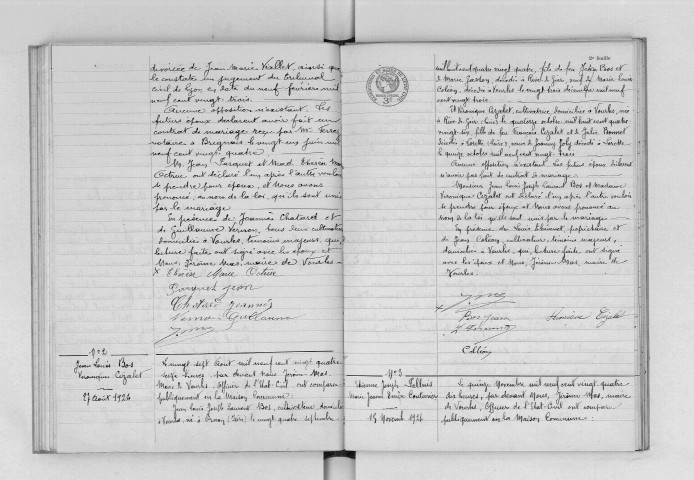 divorcée de Jean Marie Viallet, ainsi que
le constate un jugement du tribunal
civil de Lyon en date du neuf février mil
neuf cent vingt trois.
Aucune opposition n'existant. Les
futurs époux déclarent avoir fait un
contrat de mariage reçu par Me
notaire à Brignais le vingt un juin mil
neuf cent vingt quatre.
Mr Jean Parquet et Mad.
Octavie ont déclaré l'un après l'autre vouloir
se prendre pour époux, et Nous avons
prononcé, au nom de la loi, qu'ils sont unis
par le mariage.
En présence de Joannès Chatard et
de Guillaume Vernon, tous deux cultivateurs
domiciliés à Vourles, témoins majeurs, qui,
lecture faite ont signé avec les époux et
Nous, Jérôme Mas, maire de Vourles.
Marie Octavie
Parquet Jean
Chatard Joannès
Vernon Guillaume
N° 2
Jean Louis Bos
Véronique Cizalet
27 Août 1924
Le vingt sept Août mil neuf cent vingt quatre
seize heures, par devant Nous Jérôme Mas,
Maire de Vourles, Officier de l'Etat-Civil ont comparu
publiquement en la Maison Commune:
Jean Louis Joseph Laurent Bos, cultivateur domicilié
à Vourles, né à (Isère) le vingt quatre septembre
2e feuille
mil huit cent quatre vingt quatre, fils de feu Bos et
de Marie décédés à Rive de Gier, veuf de Marie Louise
Colléon, décédée à Vourles le vingt trois décembre mil neuf
cent vingt trois.
Et Véronique Cizalet, cultivatrice domiciliée à Vourles, née
à Rive de Gier (Loire) le quatorze octobre mil huit cent quatre
vingt six, fille de feu François Cizalet et de Julie Bonnet
décédés à Lorette (Loire), veuve de Joanny Joly décédé à Lorette
le quinze octobre mil neuf cent vingt trois.
Aucune opposition n'existant. Les futurs époux déclarent
n'avoir pas fait de contrat de mariage.
Monsieur Jean Louis Joseph Laurent Bos et Madame
Véronique Cizalet ont déclaré l'un après l'autre vouloir
se prendre pour époux et Nous avons prononcé au
nom de la loi qu'ils sont unis par le mariage.
En présence de Louis propriétaire et
de Jean Colléon, cultivateur, témoins majeurs,
domiciliés à Vourles, qui, lecture faite ont signé
avec les époux et Nous, Jérôme Mas, maire de
Vourles.
Bos Jean
Cizalet
Colléon
N° 3
Etienne Joseph
Marie Jeanne
15 Novembre 1924
Le quinze Novembre mil neuf cent vingt quatre
dix heures, par devant Nous, Jérôme Mas, maire
de Vourles, Officier de l'Etat-Civil ont comparu
publiquement en la Maison Commune: